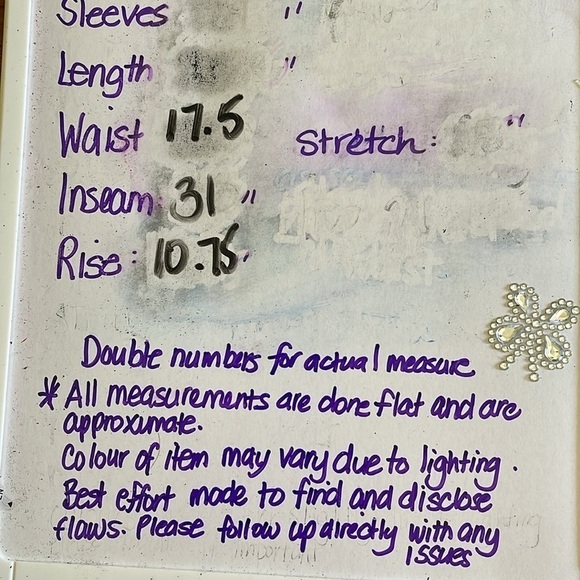 Sleeves "
Length "
Waist 17.5 Stretch: "
Inseam: 31 "
Rise: 10.75"
Double numbers for actual measure
* All measurements are done flat and are
approximate.
Colour of item may vary due to lighting.
Best effort made to find and disclose
flaws. Please follow up directly with any
issues